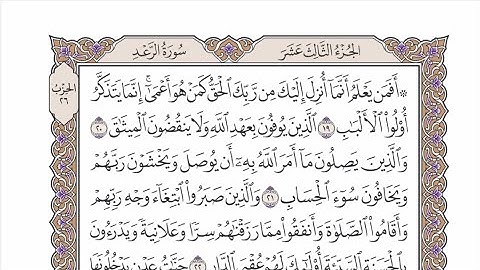 الجُزْءُ الثَّالِثَ عَشَرَ
سُورَةُ الرَّعْدِ
الحِزْبُ
٢٦
۞ أَفَمَن يَعْلَمُ أَنَّمَآ أُنزِلَ إِلَيْكَ مِن رَّبِّكَ ٱلْحَقُّ كَمَنْ هُوَ أَعْمَىٰٓۚ إِنَّمَا يَتَذَكَّرُ
أُو۟لُوا۟ ٱلْأَلْبَٰبِ ١٩ ٱلَّذِينَ يُوفُونَ بِعَهْدِ ٱللَّهِ وَلَا يَنقُضُونَ ٱلْمِيثَٰقَ ٢٠
وَٱلَّذِينَ يَصِلُونَ مَآ أَمَرَ ٱللَّهُ بِهِۦٓ أَن يُوصَلَ وَيَخْشَوْنَ رَبَّهُمْ
وَيَخَافُونَ سُوٓءَ ٱلْحِسَابِ ٢١ وَٱلَّذِينَ صَبَرُوا۟ ٱبْتِغَآءَ وَجْهِ رَبِّهِمْ
وَأَقَامُوا۟ ٱلصَّلَوٰةَ وَأَنفَقُوا۟ مِمَّا رَزَقْنَٰهُمْ سِرًّا وَعَلَانِيَةً وَيَدْرَءُونَ
بِٱلْحَسَنَةِ ٱلسَّيِّئَةَ أُو۟لَٰٓئِكَ لَهُمْ عُقْبَى ٱلدَّارِ ٢٢ جَنَّٰتُ عَدْنٍ يَدْخُلُونَهَا